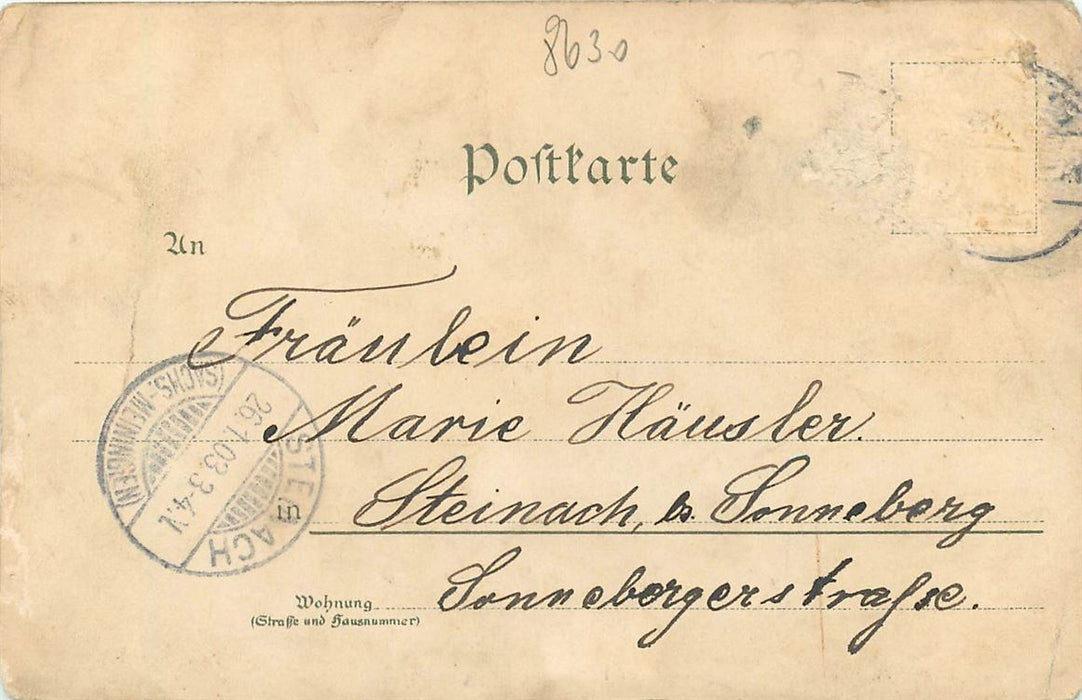 8630
Postkarte
An
Fräulein
Marie Häusler.
in Steinach, b. Sonneberg
Wohnung Sonnebergerstraße.
(Straße und Hausnummer)
STEINACH
26.1.03.3-4.N.
(SACHS.-MEININGEN)